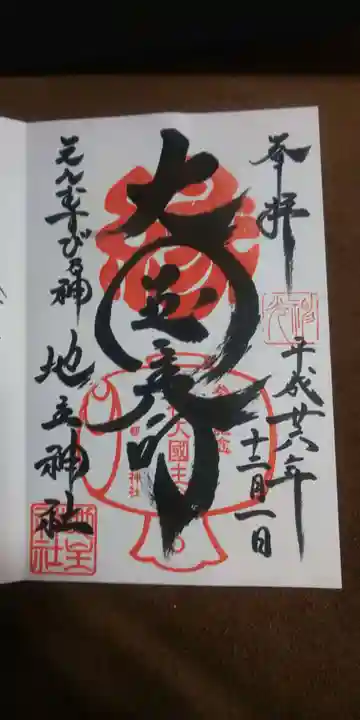 奉拝
平成廿六年
十二月一日
大国主命
縁
大國主
えんむすびの神 地主神社